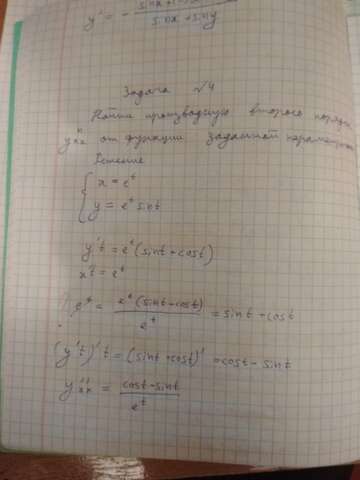 y' = - sinx+cos / sinx+siny
Задача √4
Найти производную второго порядка
y''xx от функции заданной
Решение
{ x = e^t
y = e^t sint
y't = e^t (sint + cost)
x't = e^t
= e^t (sint + cost) / e^t = sint + cost
(y't)'t = (sint + cost)' = cost - sint
y''xx = cost - sint / e^t